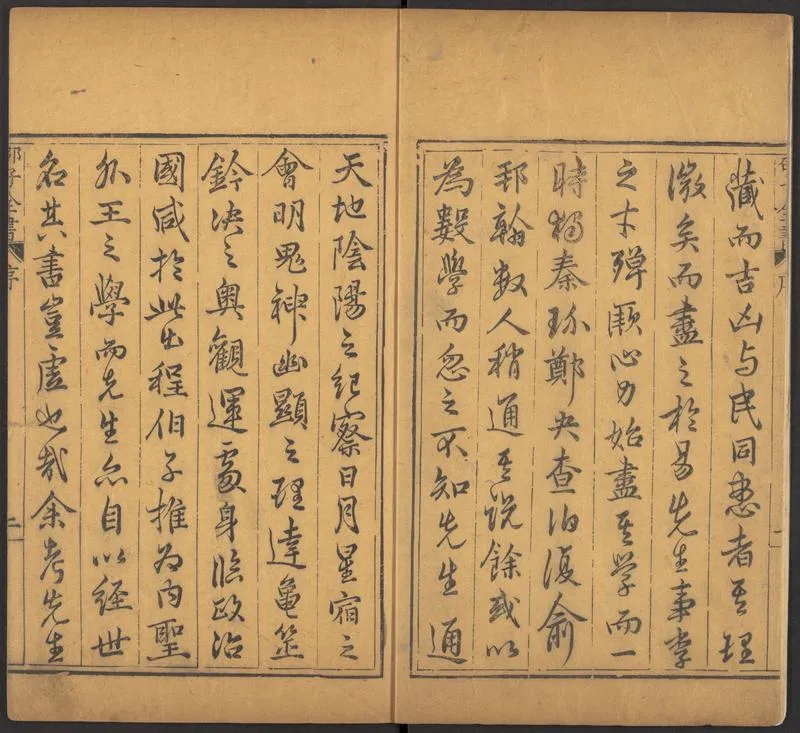 藏而吉凶与民同患者其理
微矣而盡之於易先生事李
之才殫厥心力始盡其学而一
時獨秦玠鄭夬查伯復俞
邦翰数人稍通其説餘或以
為數學而忽之不知先生通
天地陰陽之紀察日月星宿之
會明鬼神幽顯之理達龜筮
鈐决之奥觀運處身臨政治
國咸於此出程伯子推為内聖
外王之學而先生亦自以經世
名其書豈虛也哉余考先生
邵子全書 序 二